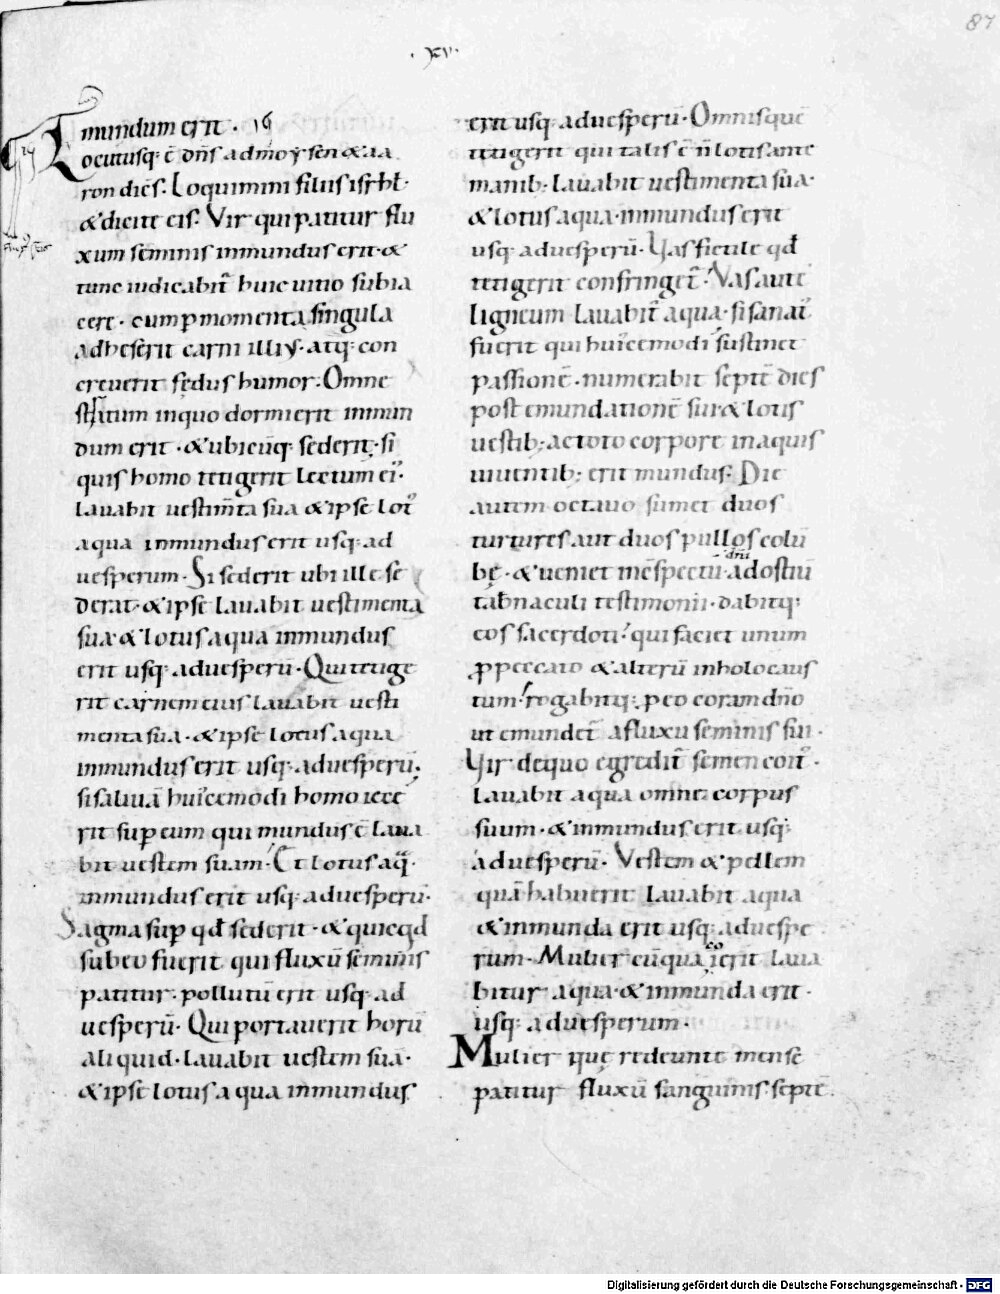 87
.xv.
mundum erit . 16
Locutusq; ē dn̄s ad moysen & aa
ron dicēs. Loquimini filiis isrl̄hel.
& dicite eis. Vir qui patitur flu
xum seminis inmundus erit. &
tunc iudicabit̄ huic uitio subia
cere. cum p momenta singula
adheserit carni illiꝰ. atq; con
creuerit fędus humor. Omne
stratum in quo dormierit inmun
dum erit . & ubicūq; sederit. si
quis homo tetigerit lectum eiꝰ.
lauabit uestim̄ta sua & ipse lotꝰ
aqua inmundus erit usq; ad
uesperum. Si sederit ubi ille se
derat. & ipse lauabit uestimenta
sua & lotus aqua inmundus
erit usq; ad uesperū. Qui tetige
rit carnem eius lauabit uesti
menta sua . & ipse lotus aqua
inmundus erit usq; ad uesperū.
si saliuā huiꝰcemodi homo iece
rit sup eum qui mundus ē laua
bit uestem suam. Et lotus aq̄.
inmundus erit usq; ad uesperū.
Sagma sup qd̄ sederit. & quicqd
sub eo fuerit qui fluxū seminis
patitur. pollutū erit usq; ad
uesperū. Qui portauerit horū
aliquid. lauabit uestem suā.
& ipse lotus aqua inmundus
erit usq; ad uesperū. Omnis quē
tetigerit qui talis ē n̄ lotis ante
manib; lauabit uestimenta sua.
& lotus aqua. inmundus erit
usq; ad uesperū. Vas fictile qd̄
tetigerit confringet̄. Vas autē
ligneum lauabit̄ aqua. si sanatꝰ
fuerit qui huiꝰcemodi sustinet
passionē. numerabit septē dies
post emundationē sui. & lotis
uestib; ac toto corpore in aquis
uiuentib; erit mundus. Die
autem octauo sumet duos
turtures aut duos pullos colū
bę. & ueniet in c̄spectū dn̄i ad ostiū
tab̄naculi testimonii. dabitq;
eos sacerdoti. qui faciet unum
p peccato & alterū in holocaus
tum. rogabitq; p eo coram dn̄o
ut emundet̄ a fluxu seminis sui.
Vir de quo egredit̄ semen coitꝰ.
lauabit aqua omne corpus
suum. & inmundus erit usq;
ad uesperū. Vestem & pellem
quā habuerit lauabit aqua
& inmunda erit usq; ad uespe
rum. Mulier cū qua coierit laua
bitur aqua. & inmunda erit.
usq; ad uesperum.
Mulier quę redeunte mense
patitur fluxū sanguinis. septē
Digitalisierung gefördert durch die Deutsche Forschungsgemeinschaft - DFG